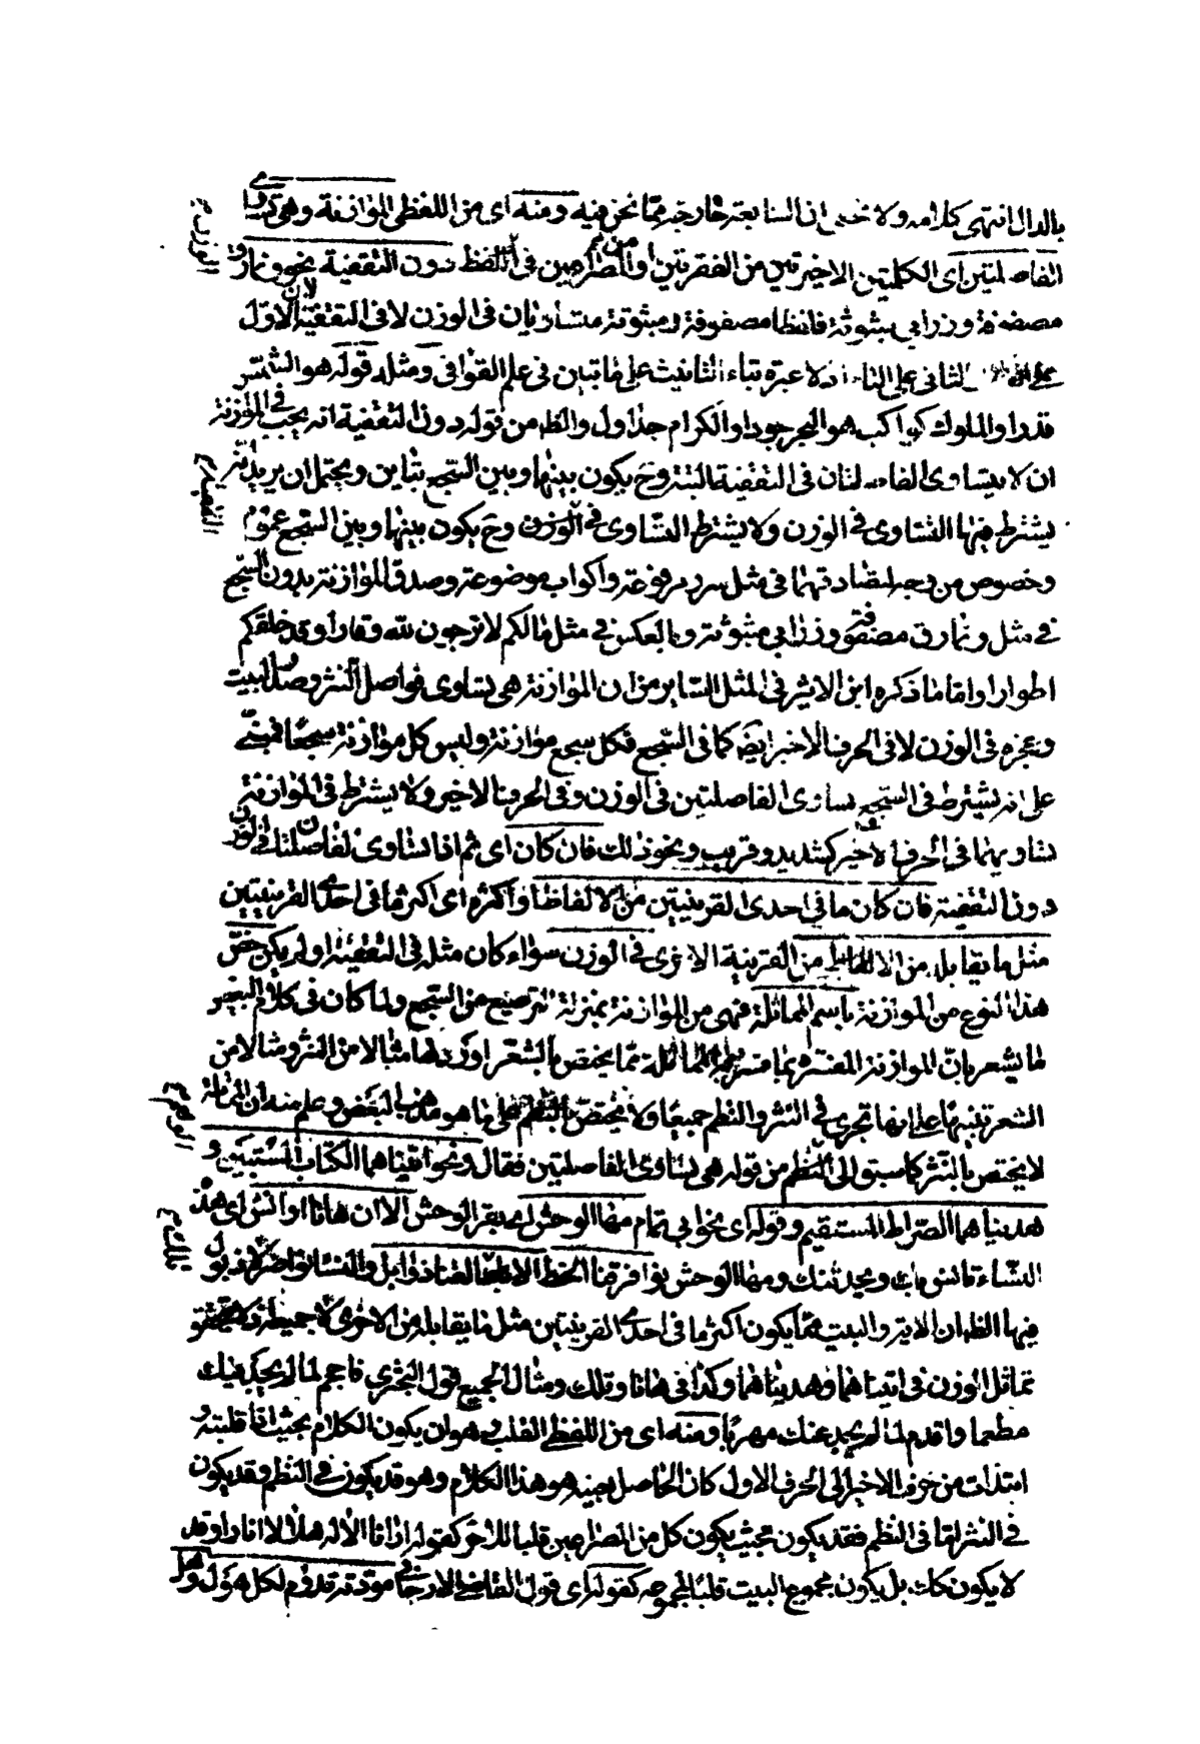 بالدال انتهى كلامه ولا يخفى ان السابعة خارجة مما نحن فيه ومنه اى من اللفظى الموازنة وهى تساوى
الفاصلتين اى الكلمتين الاخيرتين من الفقرتين او من المصراعين فى اللفظ دون التقفية نحو ونمارق
مصفوفة وزرابى مبثوثة فلفظا مصفوفة ومبثوثة متساويان فى الوزن لا فى التقفية لان الاول
على الفاء الثانى على الثاء اذ لا عبرة بتاء التانيث على ما تبين فى علم القوافى ومثله قوله هو الشمس
قدرا والملوك كواكب هو البحر جودا والكرام جداول والظ من قوله دون التقفية انه يجب فى الموازنة
ان لا يتساوى الفاصلتان فى التقفية البتة وح يكون بينها وبين السجع تباين ويحتمل ان يريد انه
يشترط فيها التساوى فى الوزن ولا يشترط التساوى فى الوزن وح يكون بينها وبين السجع عموم
وخصوص من وجه لتصادقهما فى مثل سرر مرفوعة واكواب موضوعة وصدق الموازنة بدون السجع
فى مثل ونمارق مصفوفة وزرابى مبثوثة وبالعكس فى مثل مالكم لا ترجون لله وقارا وقد خلقكم
اطوارا واما ما ذكره ابن الاثير فى المثل السائر من ان الموازنة هى تساوى فواصل النثر وصدر البيت
وعجزه فى الوزن لا فى الحرف الاخير ايضا كما فى السجع فكل سجع موازنة وليس كل موازنة سجعا فمبنى
على انه يشترط فى السجع تساوى الفاصلتين فى الوزن وفى الحرف الاخير ولا يشترط فى الموازنة
تساويهما فى الحرف الاخير كشديد وقريب ونحو ذلك فان كان اى ثم اذا تساوى الفاصلتان فى الوزن
دون التقفية فان كان ما فى احدى القرينتين من الالفاظ او اكثره اى اكثر ما فى احدى القرينتين
مثل ما يقابله من الالفاظ من القرينة الاخرى فى الوزن سواء كان مثله فى التقفية او لم يكن خص
هذا النوع من الموازنة باسم المماثلة فهى من الموازنة بمنزلة الترصيع من السجع ولما كان فى كلام البعض
ما يشعر بان الموازنة المفسرة بما فسر به المماثلة مما يختص بالشعر اورد لها مثالا من النثر ومثالا من
الشعر تنبيها على انها تجرى فى النثر والنظم جميعا ولا يختص بالنظم على ما هو مذهب البعض وعلم منه ان المماثلة
لا يختص بالنثر كما سبق الى النظم من قوله هى تساوى الفاصلتين فقال نحو اتيناهما الكتاب المستبين و
هديناهما الصراط المستقيم وقوله اى نحو ابى تمام مها الوحش اى بقر الوحش الا ان هاتا اوانس اى هذه
النساء تانس بك وتحدثك ومها الوحش نوافر قنا الخط الا ان تلك القنا ذوابل والنساء نواضر لا ذبول
فيها الظ ان الاية والبيت مما يكون اكثر ما فى احدى القرينتين مثل ما يقابله من الاخرى لا جميعه اذ لا يتحقق
تماثل الوزن فى اتيناهما وهديناهما وكذا فى هاتا وتلك ومثال الجميع قول البحترى فاحجم لما لم يجد فيك
مطمعا واقدم لما لم يجد عنك مهربا ومنه اى من اللفظى القلب وهو ان يكون الكلام بحيث اذا قلبته و
ابتدات من حرفه الاخير الى الحرف الاول كان الحاصل بعينه هو هذا الكلام وهو قد يكون فى النظم وقد يكون
فى النثر اما فى النظم فقد يكون بحيث يكون كل من المصراعين قلبا للاخر كقوله ارانا الاله هلالا انارا وقد
لا يكون كذلك بل يكون مجموع البيت قلبا لمجموعه كقوله اى قول القاضى الارجانى مودته تدوم لكل هول وهل